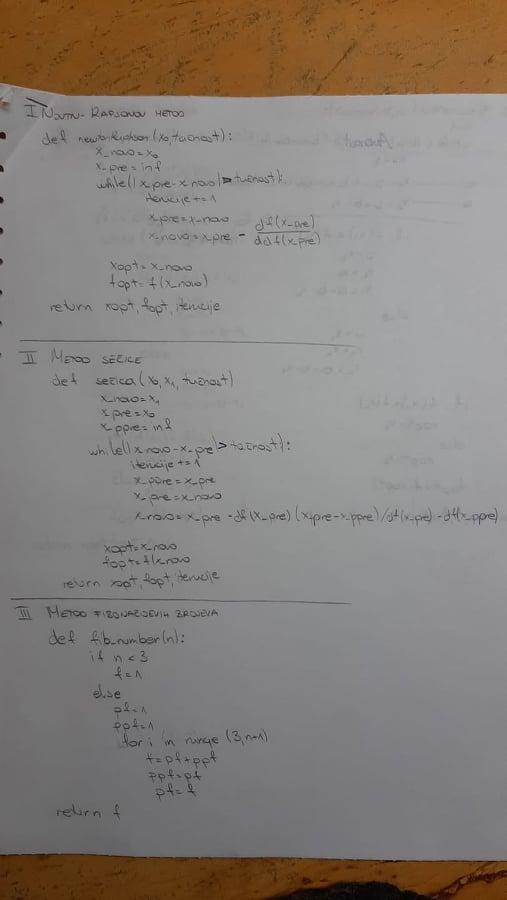 I NJUTN-RAPSONOV METOD
def newtonRaphson(x0, tačnost):
x_novo=x0
x_pre=inf
while(|x_pre-x_novo|>tačnost):
iteracije+=1
x_pre=x_novo
x_novo=x_pre - df(x_pre)/ddf(x_pre)
xopt=x_novo
fopt=f(x_novo)
return xopt, fopt, iteracije
II METOD SEČICE
def sečica(x0, x1, tačnost)
x_novo=x1
x_pre=x0
x_ppre=inf
while(|x_novo-x_pre|>tačnost):
iteracije+=1
x_ppre=x_pre
x_pre=x_novo
x_novo=x_pre-df(x_pre)(x_pre-x_ppre)/df(x_pre)-df(x_ppre)
xopt=x_novo
fopt=f(x_novo
return xopt, fopt, iteracije
III METOD FIBONAČIJEVIH BROJEVA
def fib_number(n):
if n<3
f=1
else
pf=1
ppf=1
for i in range (3,n+1)
f=pf+ppf
ppf=pf
pf=f
return f